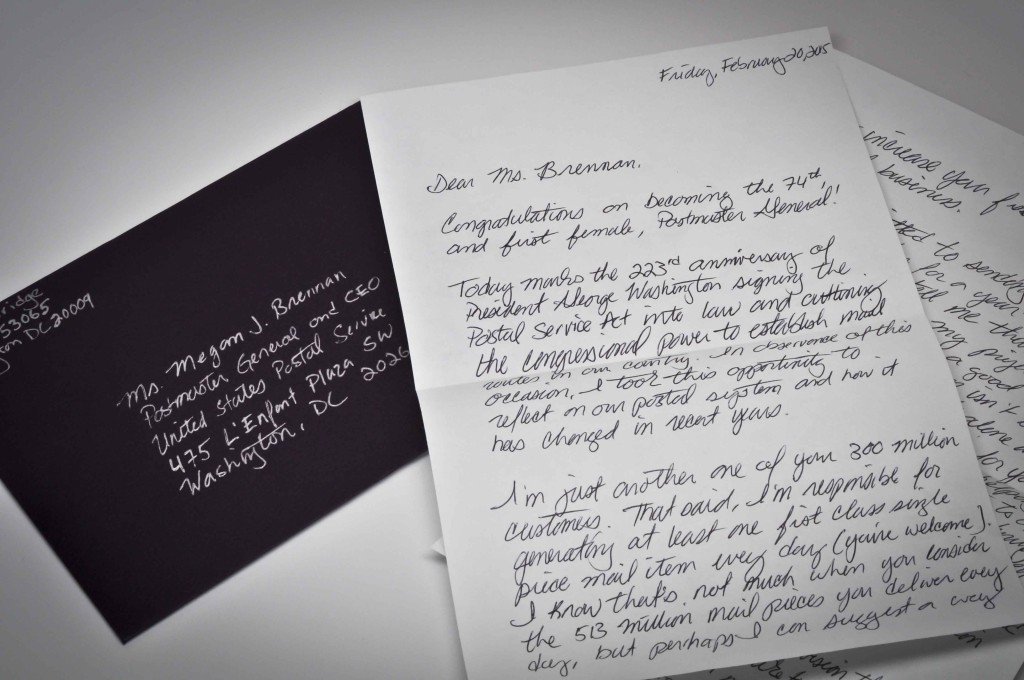 ridge
53065
DC 20009
Ms. Megan J. Brennan
Postmaster General and CEO
United States Postal Service
475 L'Enfant Plaza SW
Washington, DC 2026
Friday, February 20, 2015
Dear Ms. Brennan.
Congratulations on becoming the 74th,
and first female, Postmaster General!
Today marks the 223rd anniversary of
President George Washington signing the
Postal Service Act into law and outlining
the congressional power to establish mail
routes in our country. In observance of this
occasion, I took this opportunity to
reflect on our postal system and how it
has changed in recent years.
I'm just another one of your 300 million
customers. That said, I'm responsible for
generating at least one first class single
piece mail item every day (you're welcome).
I know that's not much when you consider
the 513 million mail pieces you deliver every
day, but perhaps I can suggest a way
increase your
business.
to sending
for a year
me
my
a good
can't
alone
for you